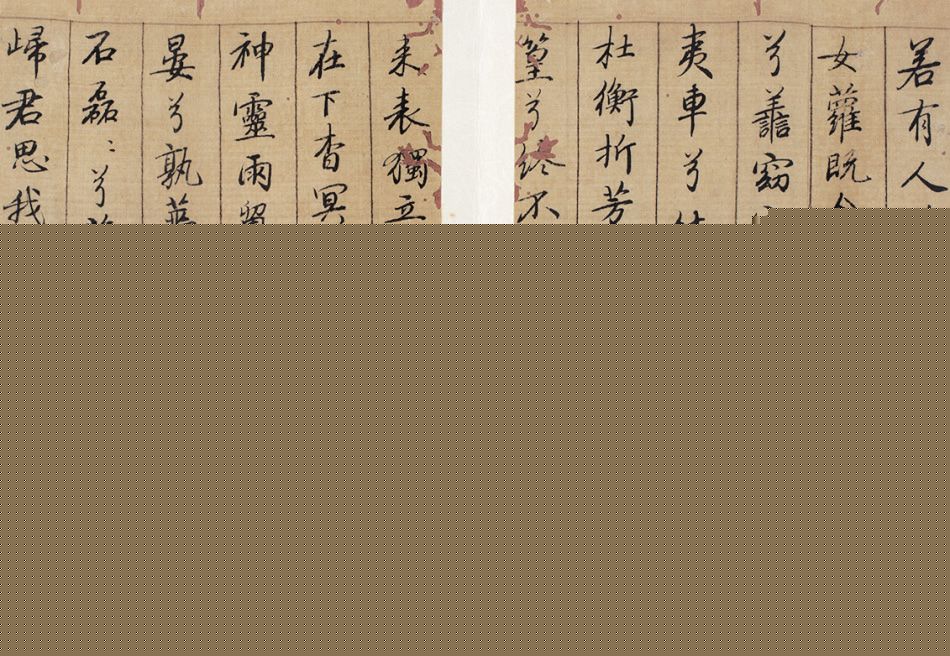 若有人
女蘿既
兮譱窈
夷車兮
杜衡折芳
篁兮終不
来表獨立
在下杳冥
神靈雨
晏兮孰
石磊〻兮
歸君思我